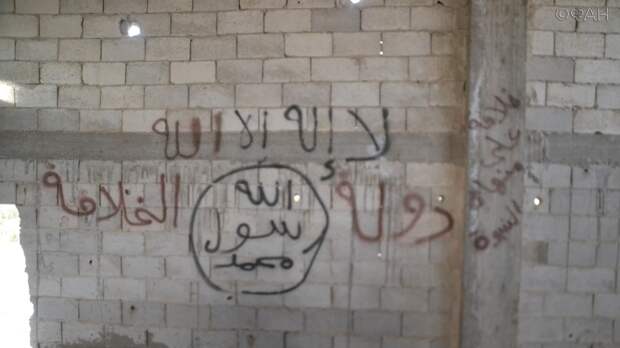 لا إله إلا الله
الله
رسول
محمد
دولة الخلافة
خلافة
على منهاج
النبوة
©ФАН